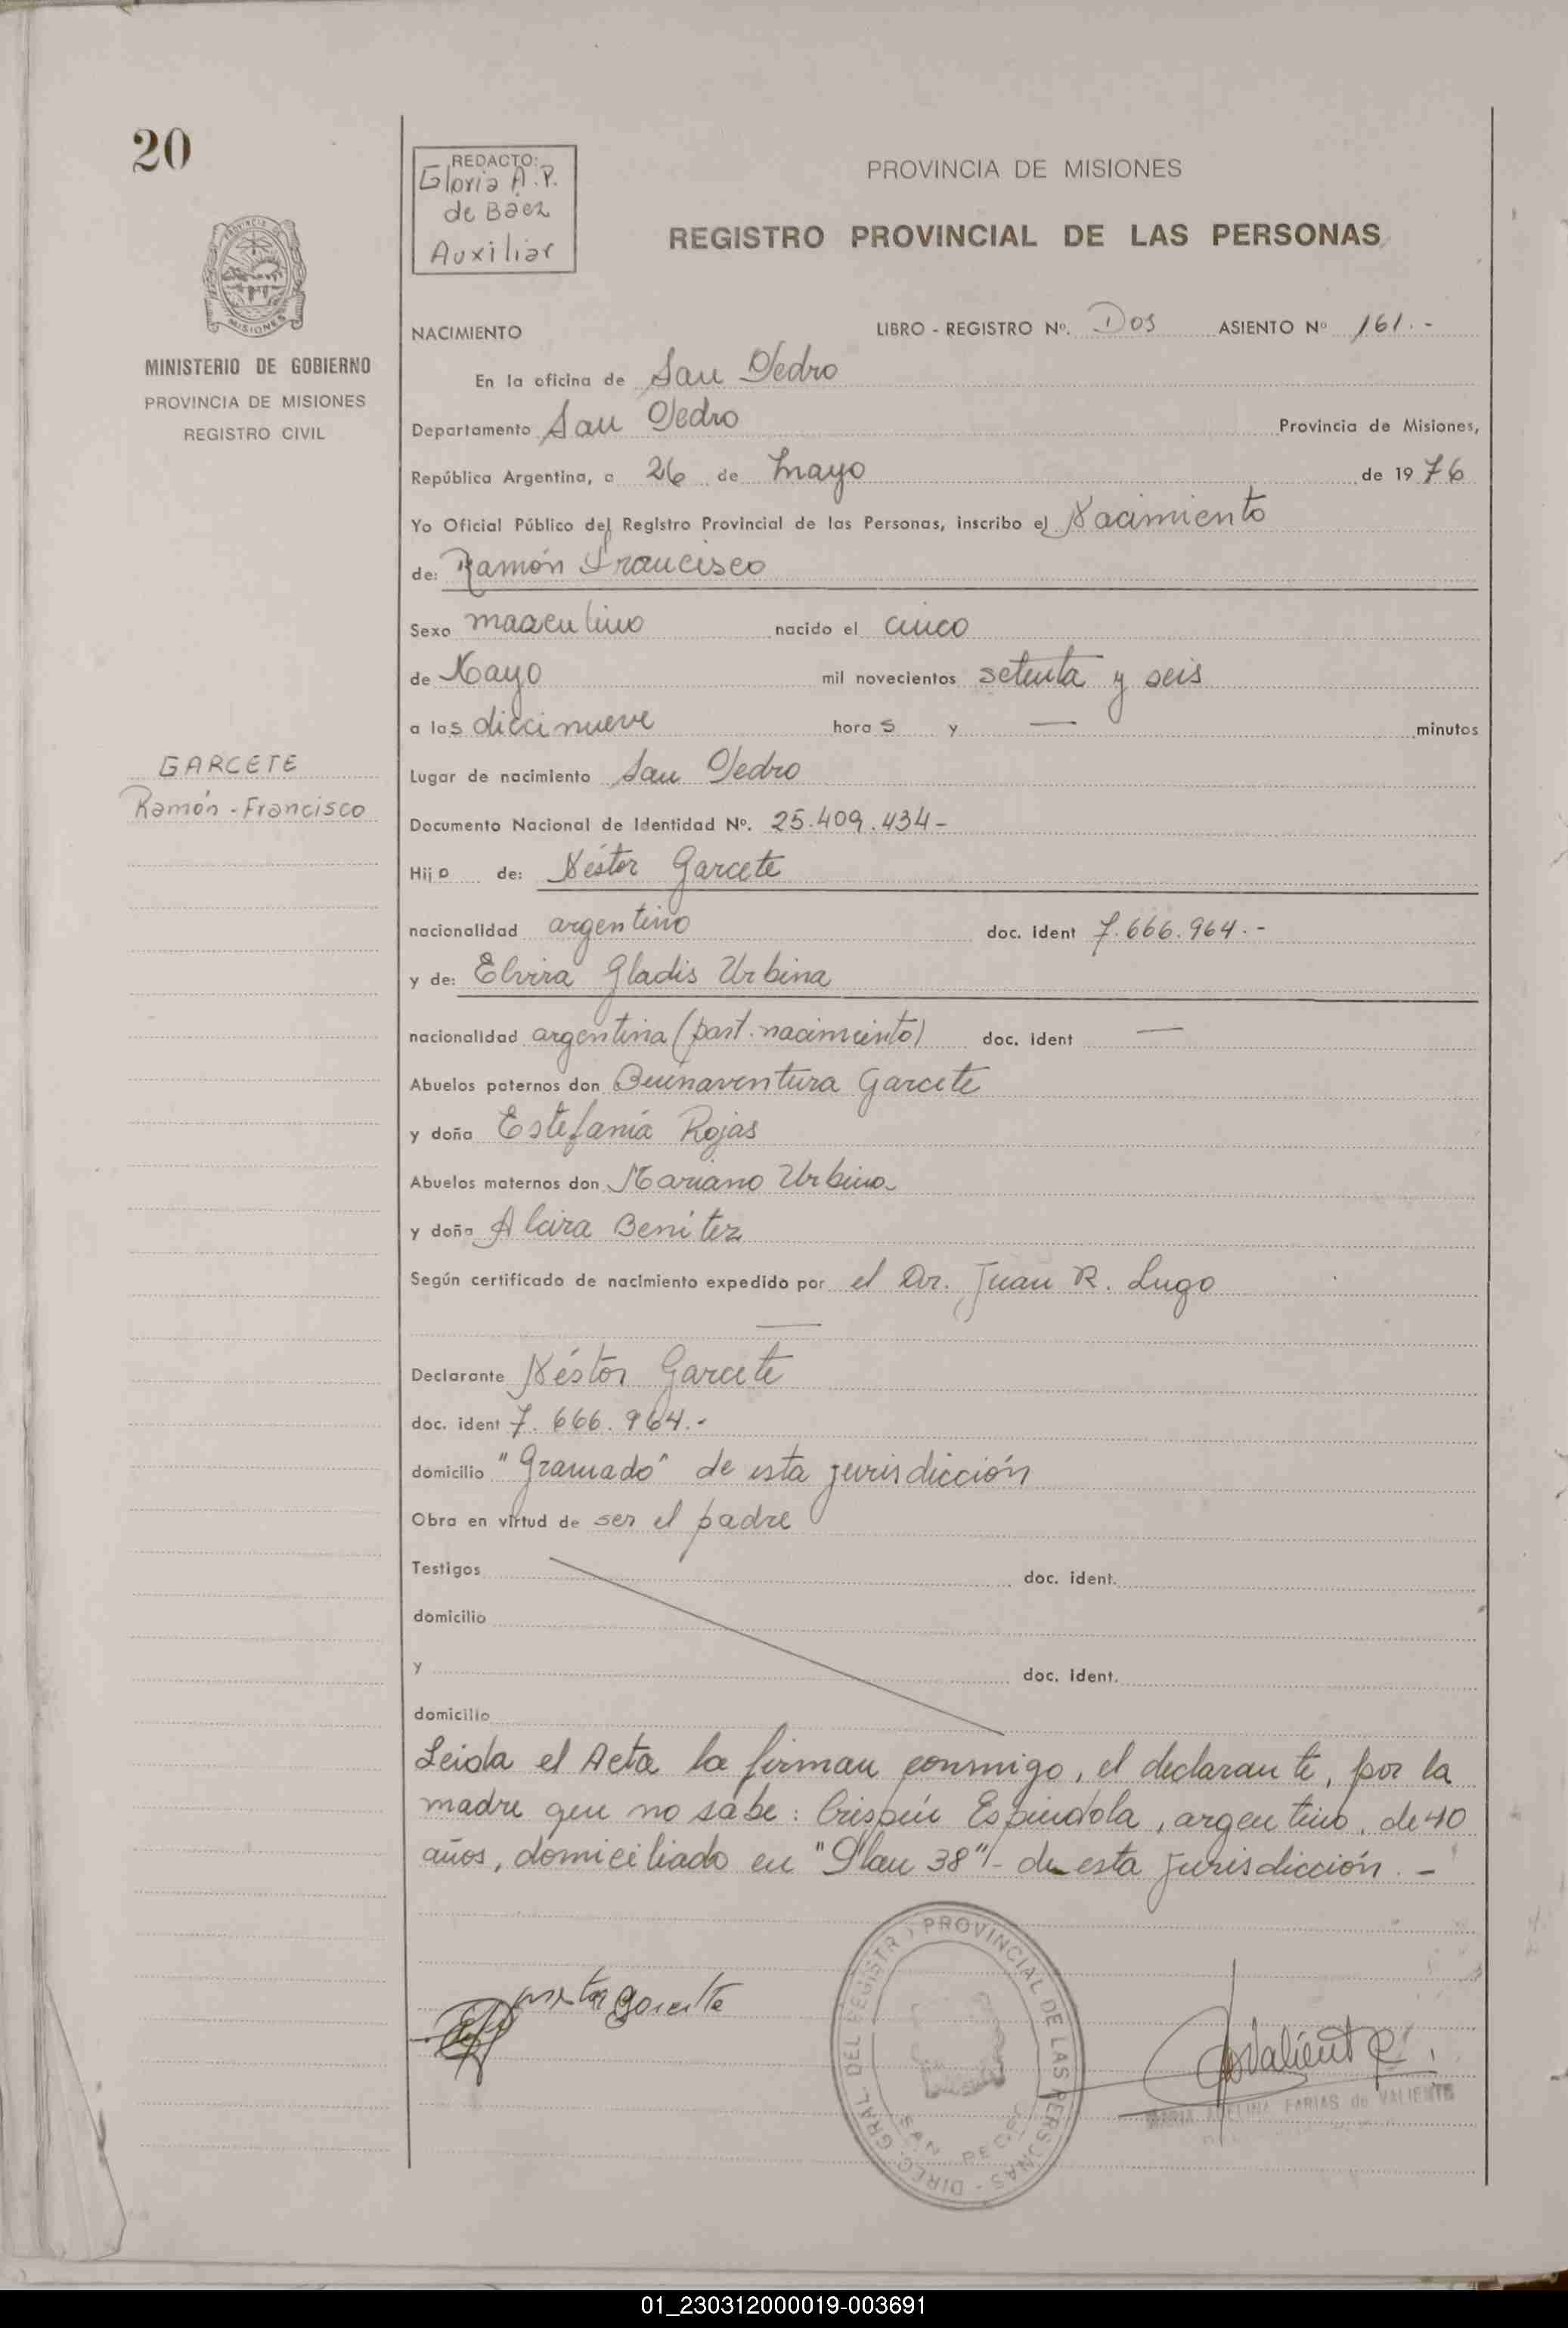 20
REDACTO:
Gloria A. P.
de Báez
Auxiliar
PROVINCIA DE MISIONES
REGISTRO PROVINCIAL DE LAS PERSONAS
MISIONES
MINISTERIO DE GOBIERNO
PROVINCIA DE MISIONES
REGISTRO CIVIL
NACIMIENTO LIBRO - REGISTRO Nº. Dos ASIENTO Nº 161.-
En la oficina de San Pedro
Departamento San Pedro Provincia de Misiones,
República Argentina, a 26 de mayo de 1976
Yo Oficial Público del Registro Provincial de las Personas, inscribo el Nacimiento
de: Ramón Francisco
Sexo masculino nacido el cinco
de Mayo mil novecientos setenta y seis
a las diecinueve horas y — minutos
GARCETE
Ramón - Francisco
Lugar de nacimiento San Pedro
Documento Nacional de Identidad Nº. 25.409.434-
Hijo de: Néstor Garcete
nacionalidad argentino doc. ident 7.666.964.-
y de: Elvira Gladis Urbina
nacionalidad argentina (part. nacimiento) doc. ident —
Abuelos paternos don Buenaventura Garcete
y doña Estefanía Rojas
Abuelos maternos don Mariano Urbina
y doña Alcira Benitez
Según certificado de nacimiento expedido por el Dr. Juan R. Lugo
—
Declarante Néstor Garcete
doc. ident 7.666.964.-
domicilio "Gramado" de esta jurisdicción
Obra en virtud de ser el padre
Testigos doc. ident.
domicilio
y doc. ident.
domicilio
Leida el Acta la firman conmigo, el declarante, por la
madre que no sabe: Crispín Espíndola, argentino, de 40
años, domiciliado en "Plan 38"- de esta jurisdicción.-
nestor garcete
DIREC. GRAL. DEL REGISTRO PROVINCIAL DE LAS PERSONAS -
SAN PEDRO
Valiente
MARIA ADELINA FARIAS de VALIENTE
01_230312000019-003691